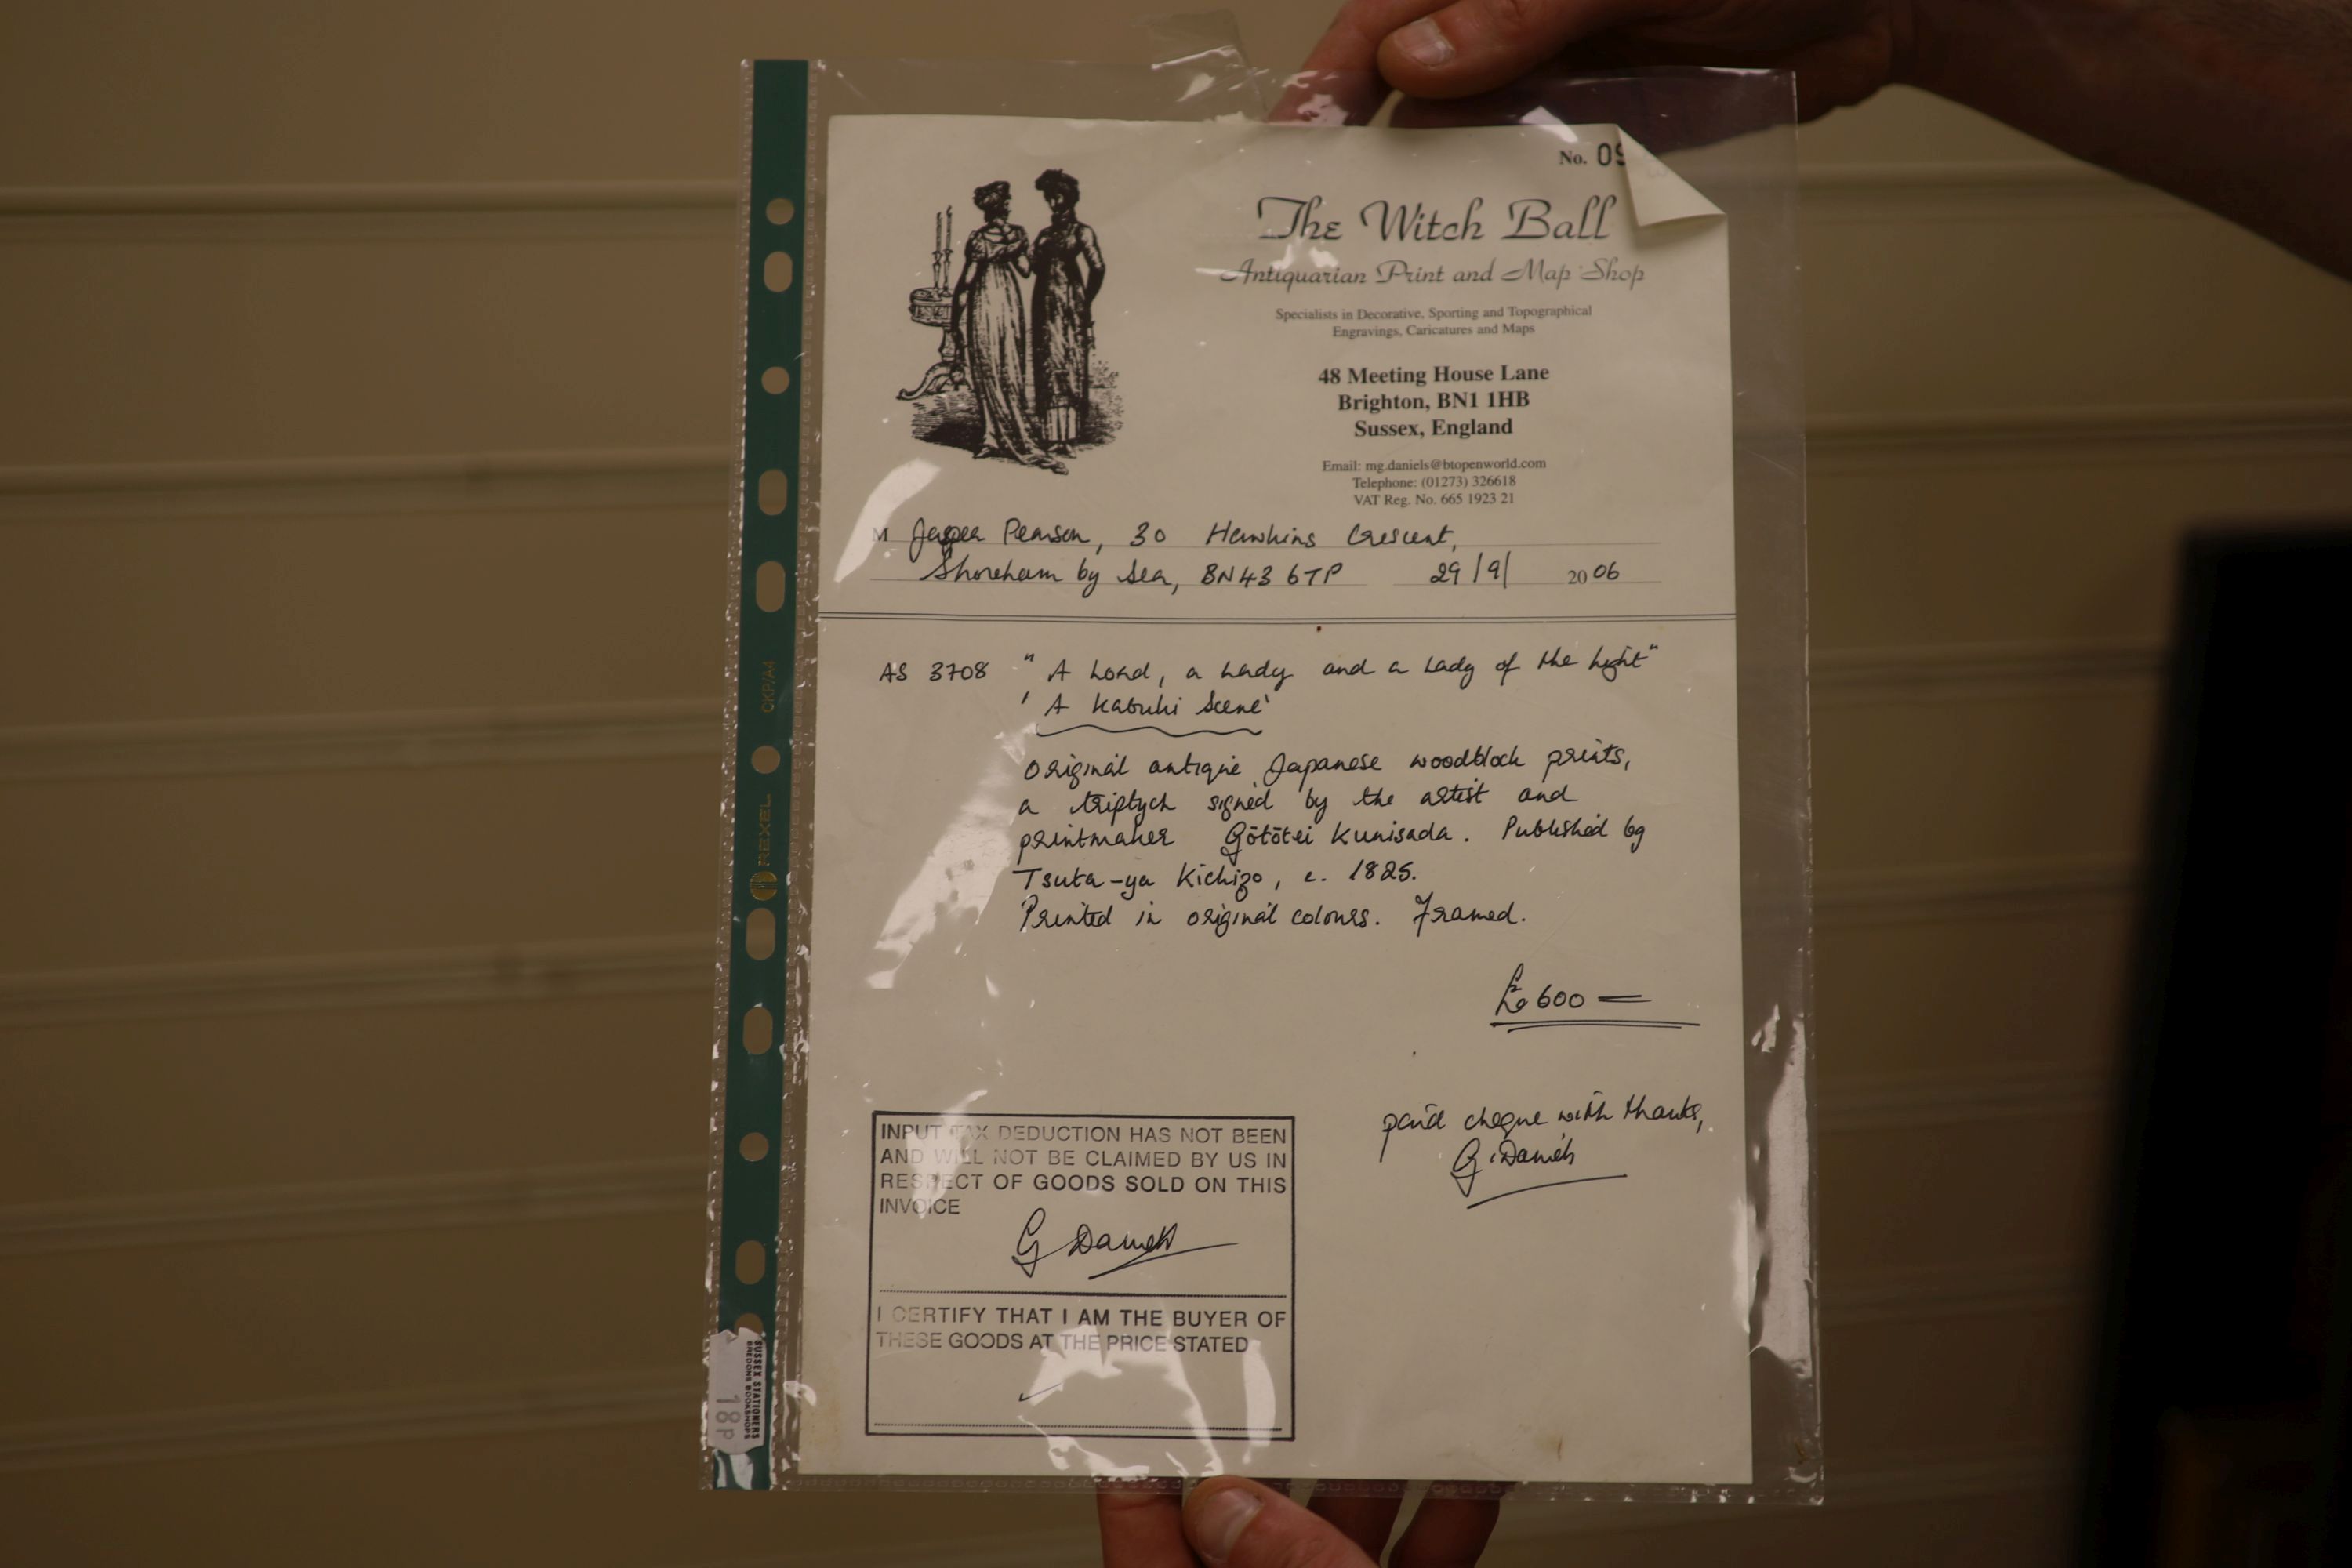 No. 09
The Witch Ball
Antiquarian Print and Map Shop
Specialists in Decorative, Sporting and Topographical
Engravings, Caricatures and Maps
48 Meeting House Lane
Brighton, BN1 1HB
Sussex, England
Email: mg.daniels@btopenworld.com
Telephone: (01273) 326618
VAT Reg. No. 665 1923 21
M Pearson, 30 Hawkins Crescent,
Shoreham by Sea, BN43 6TP 29/9/ 2006
AS 3708 "A Lord, a Lady and a Lady of the Light"
'A Kabuki Scene'
Original antique Japanese woodblock prints,
a triptych signed by the artist and
printmaker Gōtōtei Kunisada. Published by
Tsuta-ya Kichizo, c. 1825.
Printed in original colours. Framed.
£600 =
paid cheque with thanks,
G. Daniels
INPUT TAX DEDUCTION HAS NOT BEEN
AND WILL NOT BE CLAIMED BY US IN
RESPECT OF GOODS SOLD ON THIS
INVOICE
G Daniels
I CERTIFY THAT I AM THE BUYER OF
THESE GOODS AT THE PRICE STATED
REXEL CKP/A4
SUSSEX STATIONERS
BREDONS BOOKSHOPS
18P